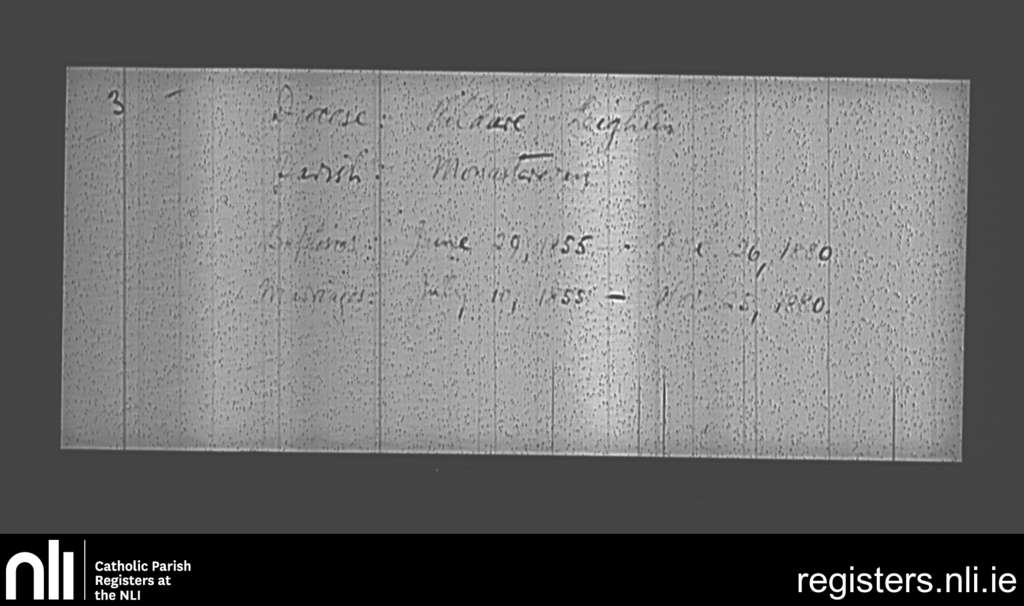 3 -
Diocese: Kildare & Leighlin
Parish: Monasterevin
Baptisms: June 29, 1855 - 26, 1880
Marriages: July 10, 1855 - Nov. 25, 1880.
nli
Catholic Parish
Registers at
the NLI
registers.nli.ie